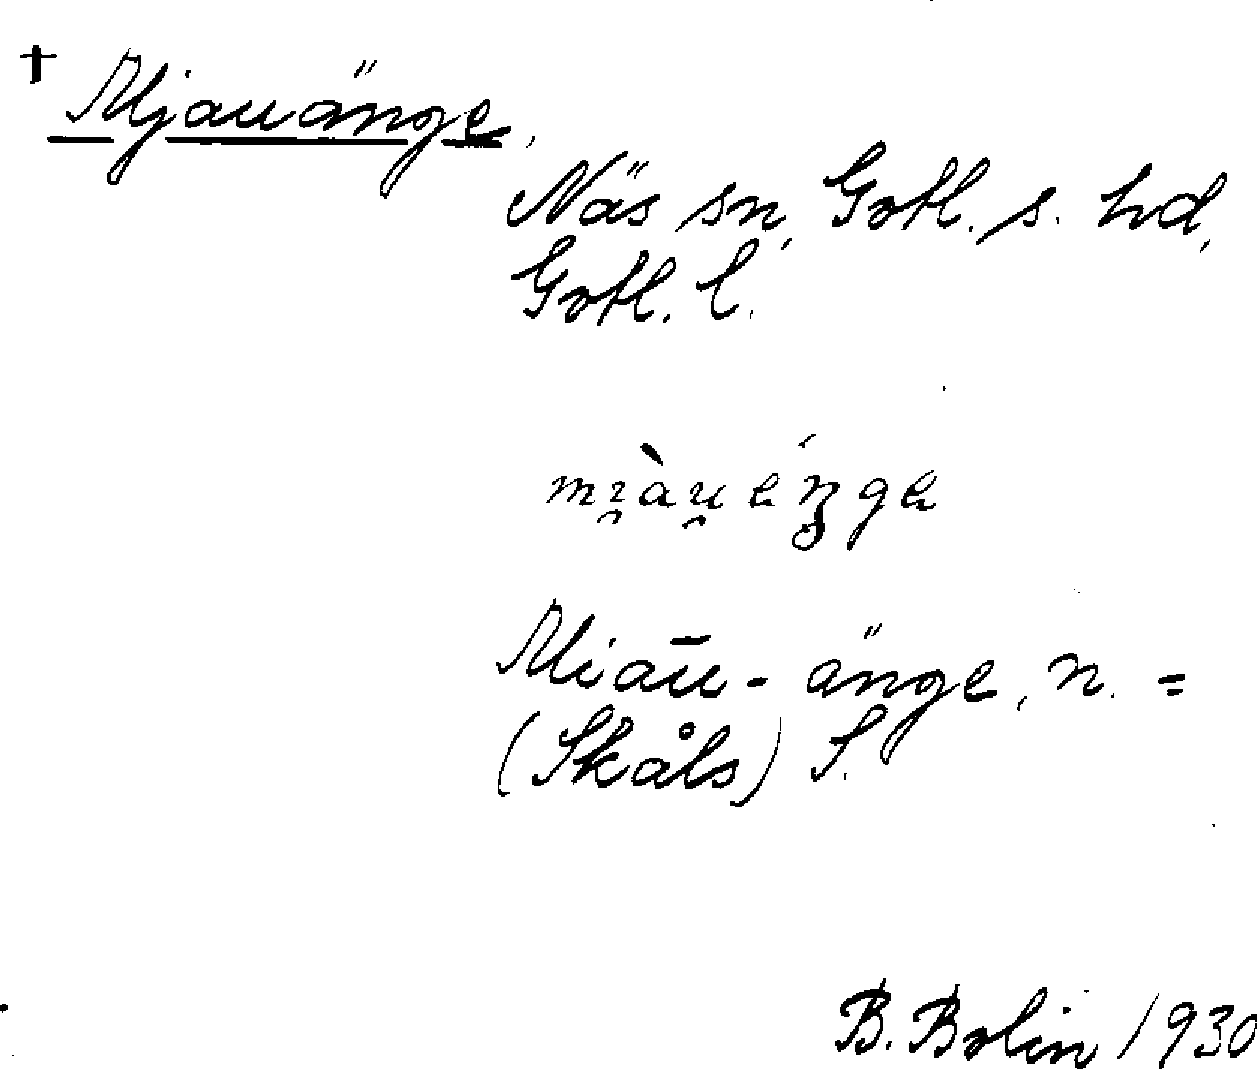 † Mjauänge,
Näs sn, Gotl. s. hd,
Gotl. l.
Miaū-änge, n. =
(Skåls) S.
B. Bolin 1930